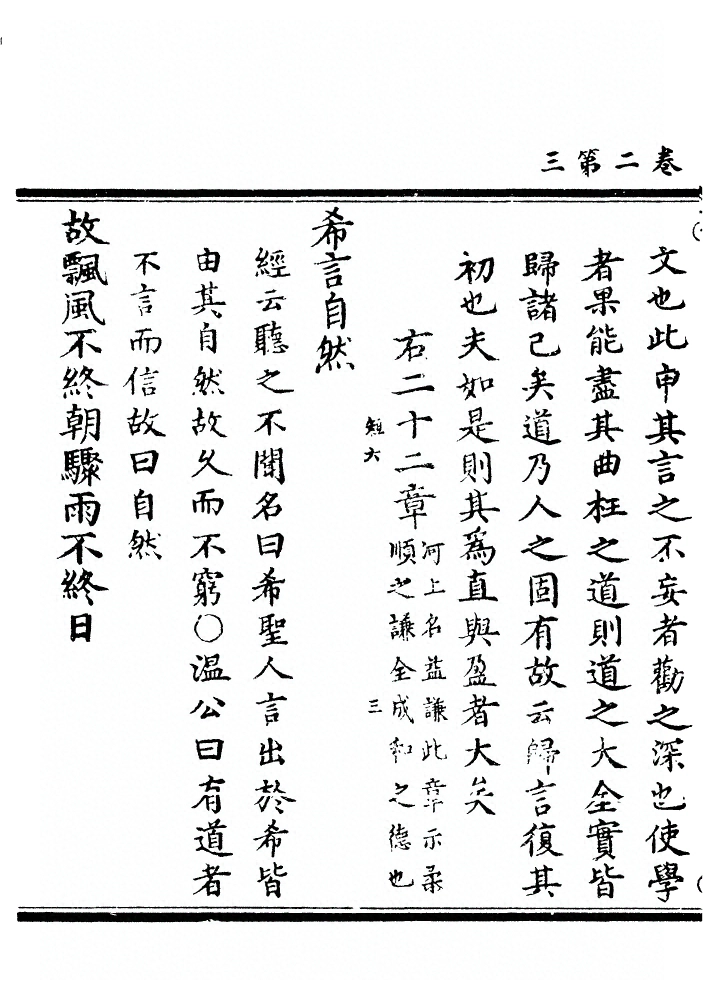 卷二第三
文也此申其言之不妄者勸之深也使學
者果能盡其曲枉之道則道之大全實皆
歸諸己矣道乃人之固有故云歸言復其
初也夫如是則其為直與盈者大矣
右二十二章河上名益謙此章示柔
順之謙全成和之德也
短六
三
希言自然
經云聽之不聞名曰希聖人言出於希皆
由其自然故久而不窮○溫公曰有道者
不言而信故曰自然
故飄風不終朝驟雨不終日